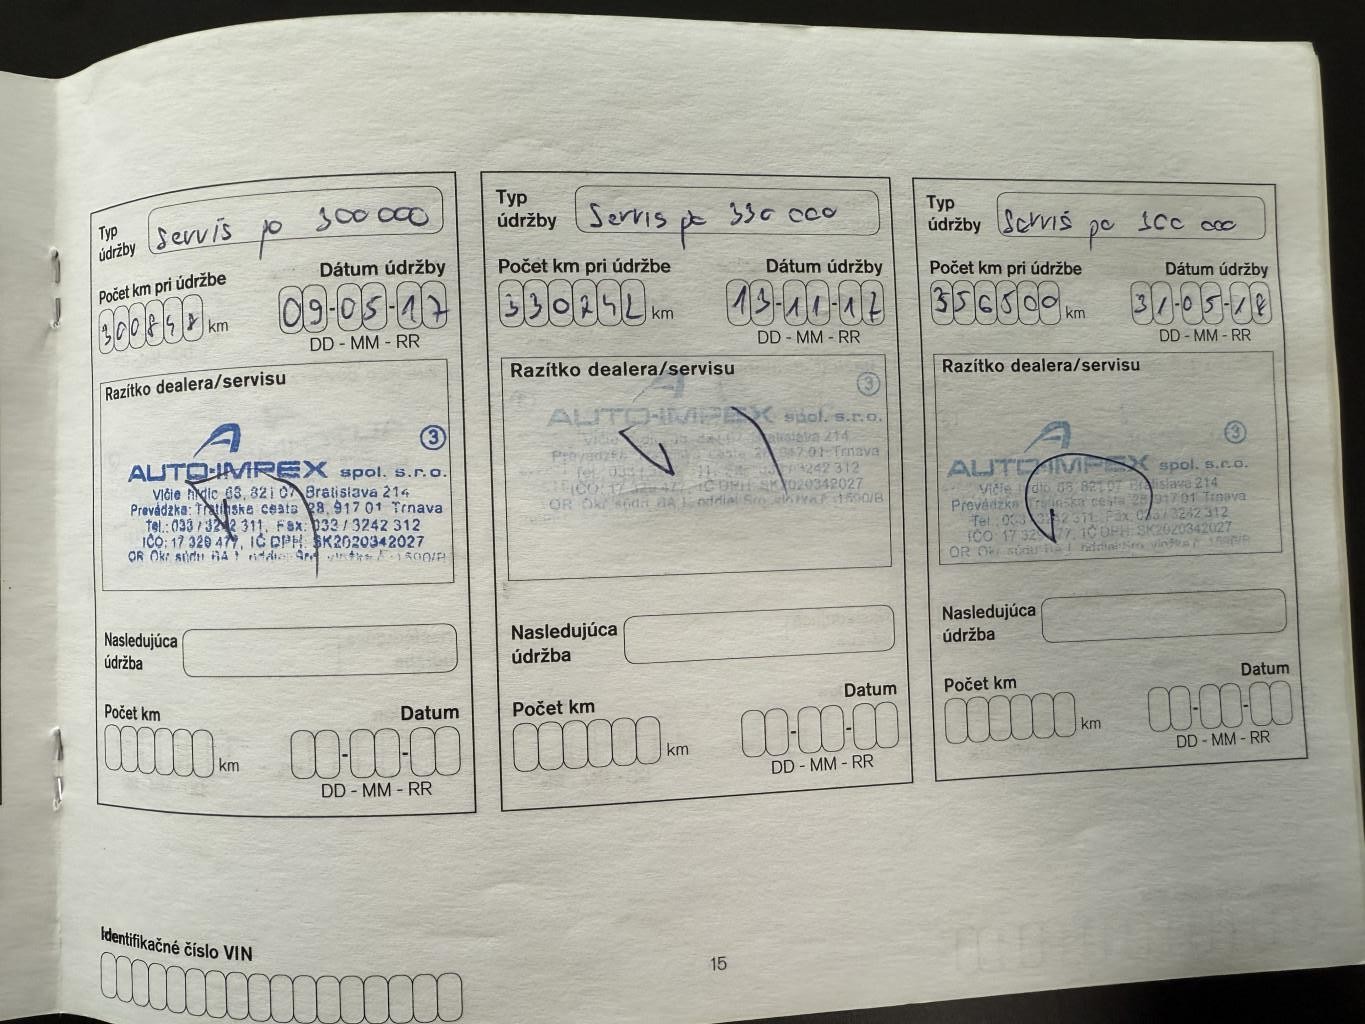 Typ údržby Servis po 300 000
Počet km pri údržbe
Dátum údržby
300848 km
09-05-17
DD - MM - RR
Razítko dealera/servisu
3
AUTO-IMPEX spol. s.r.o.
Vlčie hrdlo 68, 821 07 Bratislava 214
Prevádzka: Trstínska cesta 28, 917 01 Trnava
Tel.: 033 / 3242 311, Fax: 033 / 3242 312
IČO: 17 329 477, IČ DPH: SK2020342027
OR Okr. súdu BA I. oddiel Sro, vložka č. 1590/B
Nasledujúca údržba
Počet km
Datum
km
DD - MM - RR
Typ údržby Servis po 330 000
Počet km pri údržbe
Dátum údržby
330242 km
13-11-17
DD - MM - RR
Razítko dealera/servisu
3
AUTO-IMPEX spol. s.r.o.
Vlčie hrdlo 68, 821 07 Bratislava 214
Prevádzka: Trstínska cesta 28, 917 01 Trnava
Tel.: 033 / 3242 311, Fax: 033 / 3242 312
IČO: 17 329 477, IČ DPH: SK2020342027
OR Okr. súdu BA I. oddiel Sro, vložka č. 1590/B
Nasledujúca údržba
Počet km
Datum
km
DD - MM - RR
Typ údržby Servis po 300 000
Počet km pri údržbe
Dátum údržby
356500 km
31-05-18
DD - MM - RR
Razítko dealera/servisu
3
AUTO-IMPEX spol. s.r.o.
Vlčie hrdlo 68, 821 07 Bratislava 214
Prevádzka: Trstínska cesta 28, 917 01 Trnava
Tel.: 033 / 3242 311, Fax: 033 / 3242 312
IČO: 17 329 477, IČ DPH: SK2020342027
OR Okr. súdu BA I. oddiel Sro, vložka č. 1590/B
Nasledujúca údržba
Počet km
Datum
km
DD - MM - RR
Identifikačné číslo VIN
15